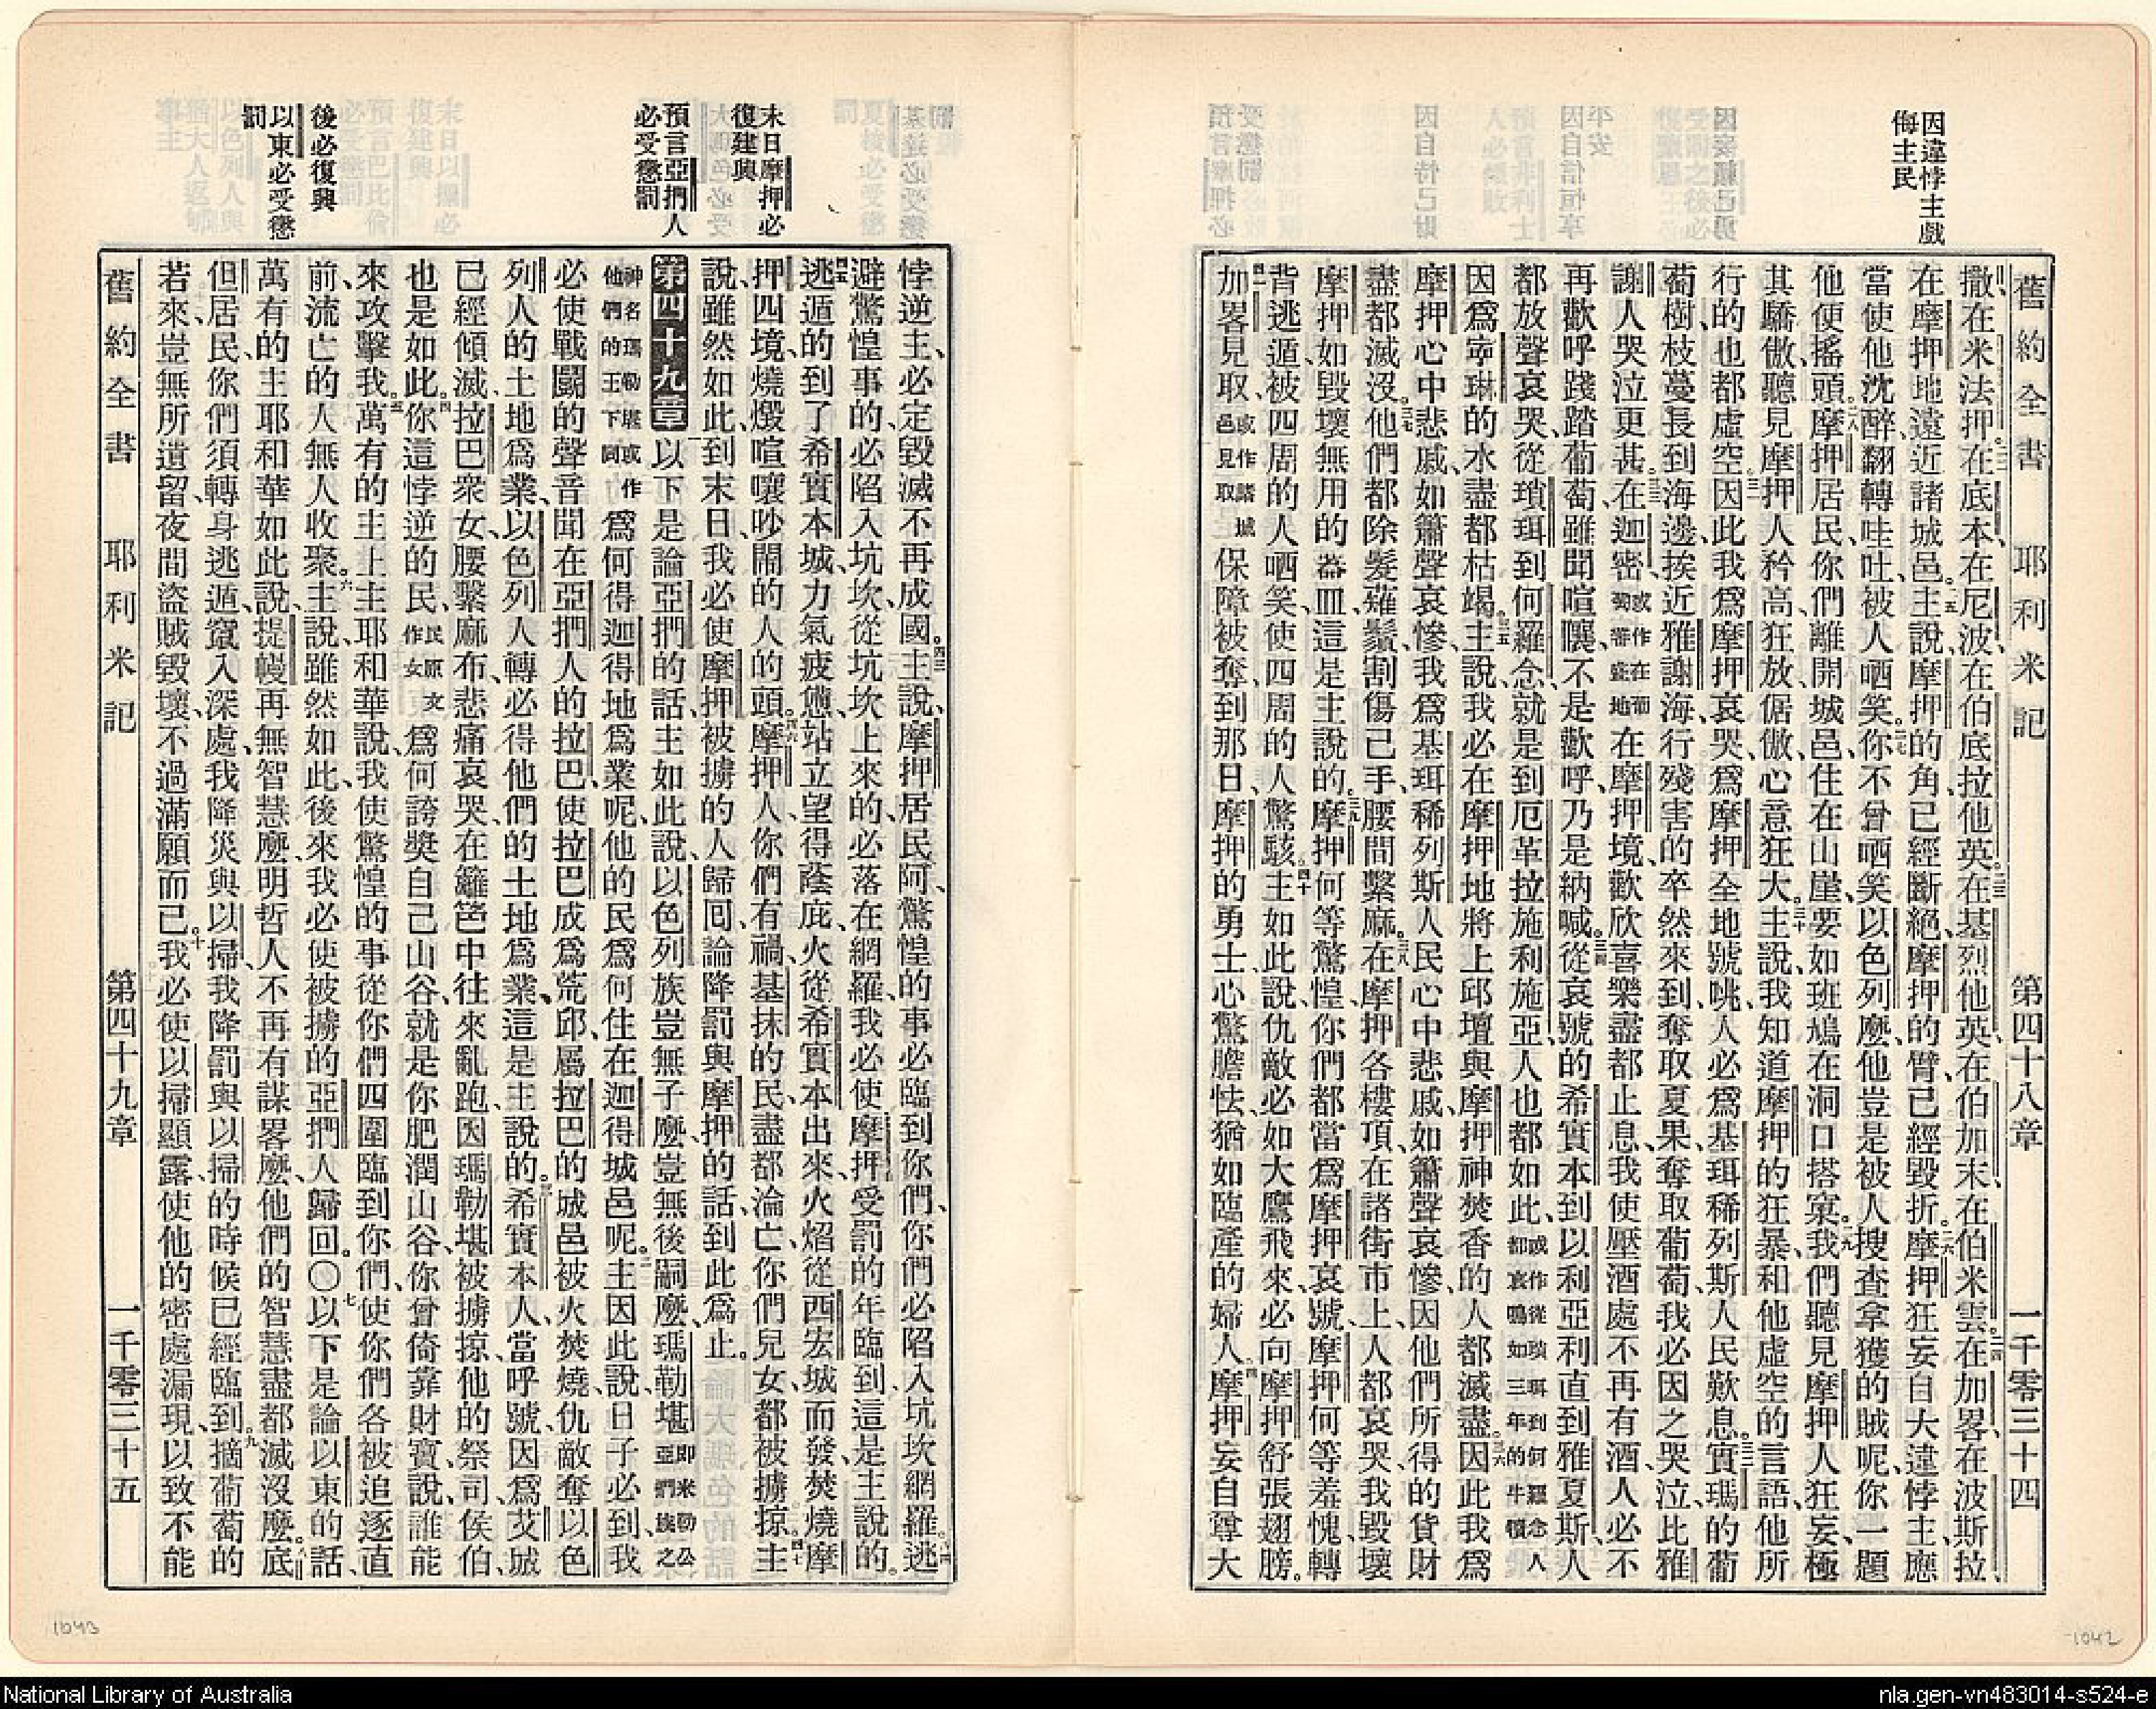 因違悖主戲
侮主民
舊約全書 耶利米記 第四十八章 一千零三十四
撒、在米法押。在底本、在尼波、在伯底拉他英。在基烈他英、在伯加末、在伯米雲。在加畧、在波斯拉、
在摩押地遠近諸城邑。主說、摩押的角已經斷絕、摩押的臂、已經毀折。摩押狂妄自大、違悖主、應
當使他沈醉、翻轉哇吐、被人哂笑。你不曾哂笑以色列麼、他豈是被人搜查拿獲的賊呢、你一題
他、便搖頭。摩押居民、你們離開城邑、住在山崖、要如班鳩在洞口搭窠。我們聽見摩押人狂妄、極
其驕傲、聽見摩押人矜高、狂放、倨傲、心意狂大。主說、我知道摩押的狂暴、和他虛空的言語、他所
行的也都虛空。因此我為摩押哀哭、為摩押全地號咷、人必為基珥稀列斯人民歎息。實瑪的葡
萄樹、枝蔓長到海邊、挨近雅謝海、行殘害的卒然來到、奪取夏果、奪取葡萄、我必因之哭泣、比雅
謝人哭泣更甚。在迦密或作在葡萄蕃盛地在摩押境、歡欣喜樂盡都止息、我使壓酒處不再有酒、人必不
再歡呼踐踏葡萄、雖聞喧嚷、不是歡呼、乃是納喊。從哀號的希實本、到以利亞利、直到雅夏斯、人
都放聲哀哭、從瑣珥到何羅念、就是到厄革拉施利施亞、人也都如此、或作從瑣珥到何羅念人都哀鳴如三年的牛犢
因為寧琳的水盡都枯竭。主說、我必在摩押地將上邱壇與摩押神焚香的人都滅盡。因此我為
摩押心中悲戚、如簫聲哀慘、我為基珥稀列斯人民心中悲戚、如簫聲哀慘、因他們所得的貨財
盡都滅沒。他們都除髮薙鬚、割傷己手、腰間繫麻。在摩押各樓項、在諸街市上、人都哀哭、我毀壞
摩押、如毀壞無用的器皿、這是主說的。摩押何等驚惶、你們都當為摩押哀號、摩押何等羞愧、轉
背逃遁、被四周的人哂笑、使四周的人驚駭。主如此說、仇敵必如大鷹飛來、必向摩押舒張翅膀。
加畧見取、或作諸城邑見取保障被奪、到那日、摩押的勇士、心驚膽怯、猶如臨產的婦人。摩押妄自尊大
末日摩押必
復建興
預言亞捫人
必受懲罰
後必復興
以東必受懲
罰
悖逆主、必定毀滅不再成國。主說、摩押居民阿、驚惶的事必臨到你們、你們必陷入坑坎網羅。逃
避驚惶事的、必陷入坑坎、從坑坎上來的、必落在網羅、我必使摩押受罰的年臨到、這是主說的。
逃遁的到了希實本城、力氣疲憊、站立望得蔭庇、火從希實本出來、火焰從西宏城而發、焚燒摩
押四境、燒燬喧嚷吵鬧的人的頭。摩押人、你們有禍、基抹的民、盡都淪亡、你們兒女、都被擄掠。主
說、雖然如此、到末日我必使摩押被擄的人歸囘、論降罰與摩押的話、到此為止。
第四十九章 以下是論亞捫的話、主如此說、以色列族豈無子麼、豈無後嗣麼、瑪勒堪即米勒公亞捫族之
神名瑪勒堪或作他們的王下同為何得迦得地為業呢、他的民為何住在迦得城邑呢。主因此說、日子必到、我
必使戰鬪的聲音、聞在亞捫人的拉巴、使拉巴成為荒邱、屬拉巴的城邑被火焚燒、仇敵奪以色
列人的土地為業、以色列人轉必得他們的土地為業、這是主說的。希實本人、當呼號、因為艾城
已經傾滅、拉巴衆女、腰繫麻布、悲痛哀哭、在籬笆中往來亂跑、因瑪勒堪被擄掠、他的祭司侯伯
也是如此。你這悖逆的民、民原文作女為何誇獎自己山谷、就是你肥潤山谷、你曾倚靠財寶、說、誰能
來攻擊我。萬有的主上主耶和華說、我使驚惶的事從你們四圍臨到你們、使你們各被追逐直
前、流亡的人、無人收聚。主說、雖然如此、後來我必使被擄的亞捫人歸回。〇以下是論以東的話、
萬有的主耶和華如此說、提幔再無智慧麼、明哲人不再有謀畧麼、他們的智慧盡都滅沒麼。底
但居民、你們須轉身逃遁、竄入深處、我降災與以掃、我降罰與以掃的時候已經臨到。摘葡萄的
若來、豈無所遺留、夜間盜賊毀壞、不過滿願而已。我必使以掃顯露、使他的密處漏現、以致不能
舊約全書 耶利米記 第四十九章 一千零三十五
1043
1042
National Library of Australia
nla.gen-vn483014-s524-e